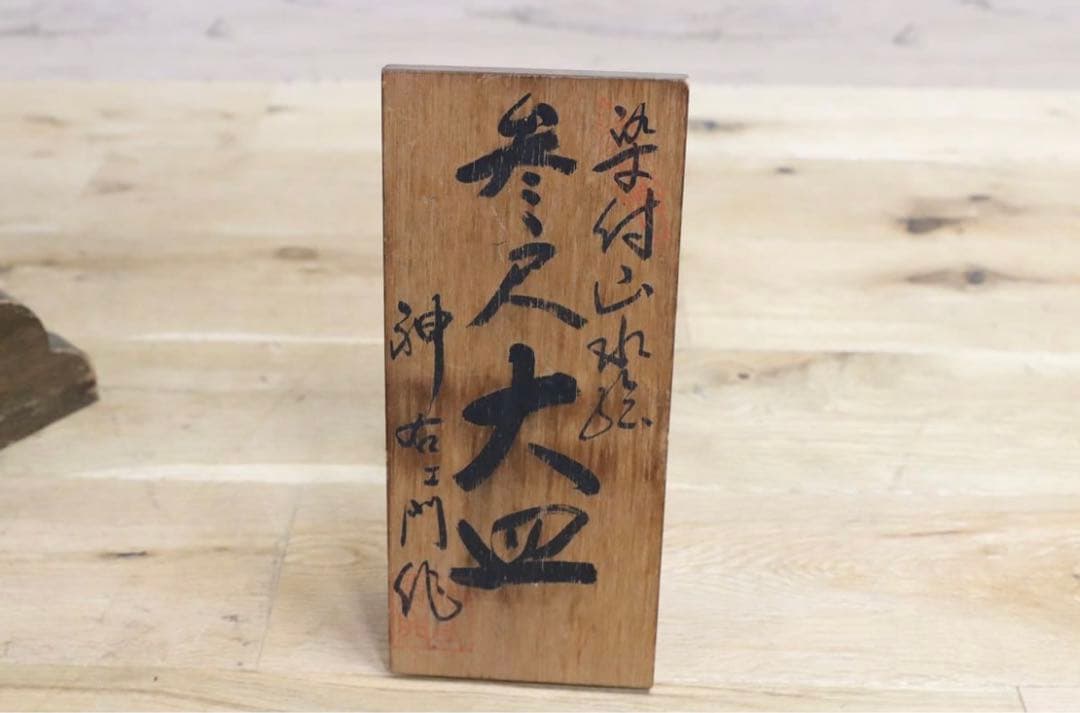 染付山水絵
参尺大皿
神右エ門作